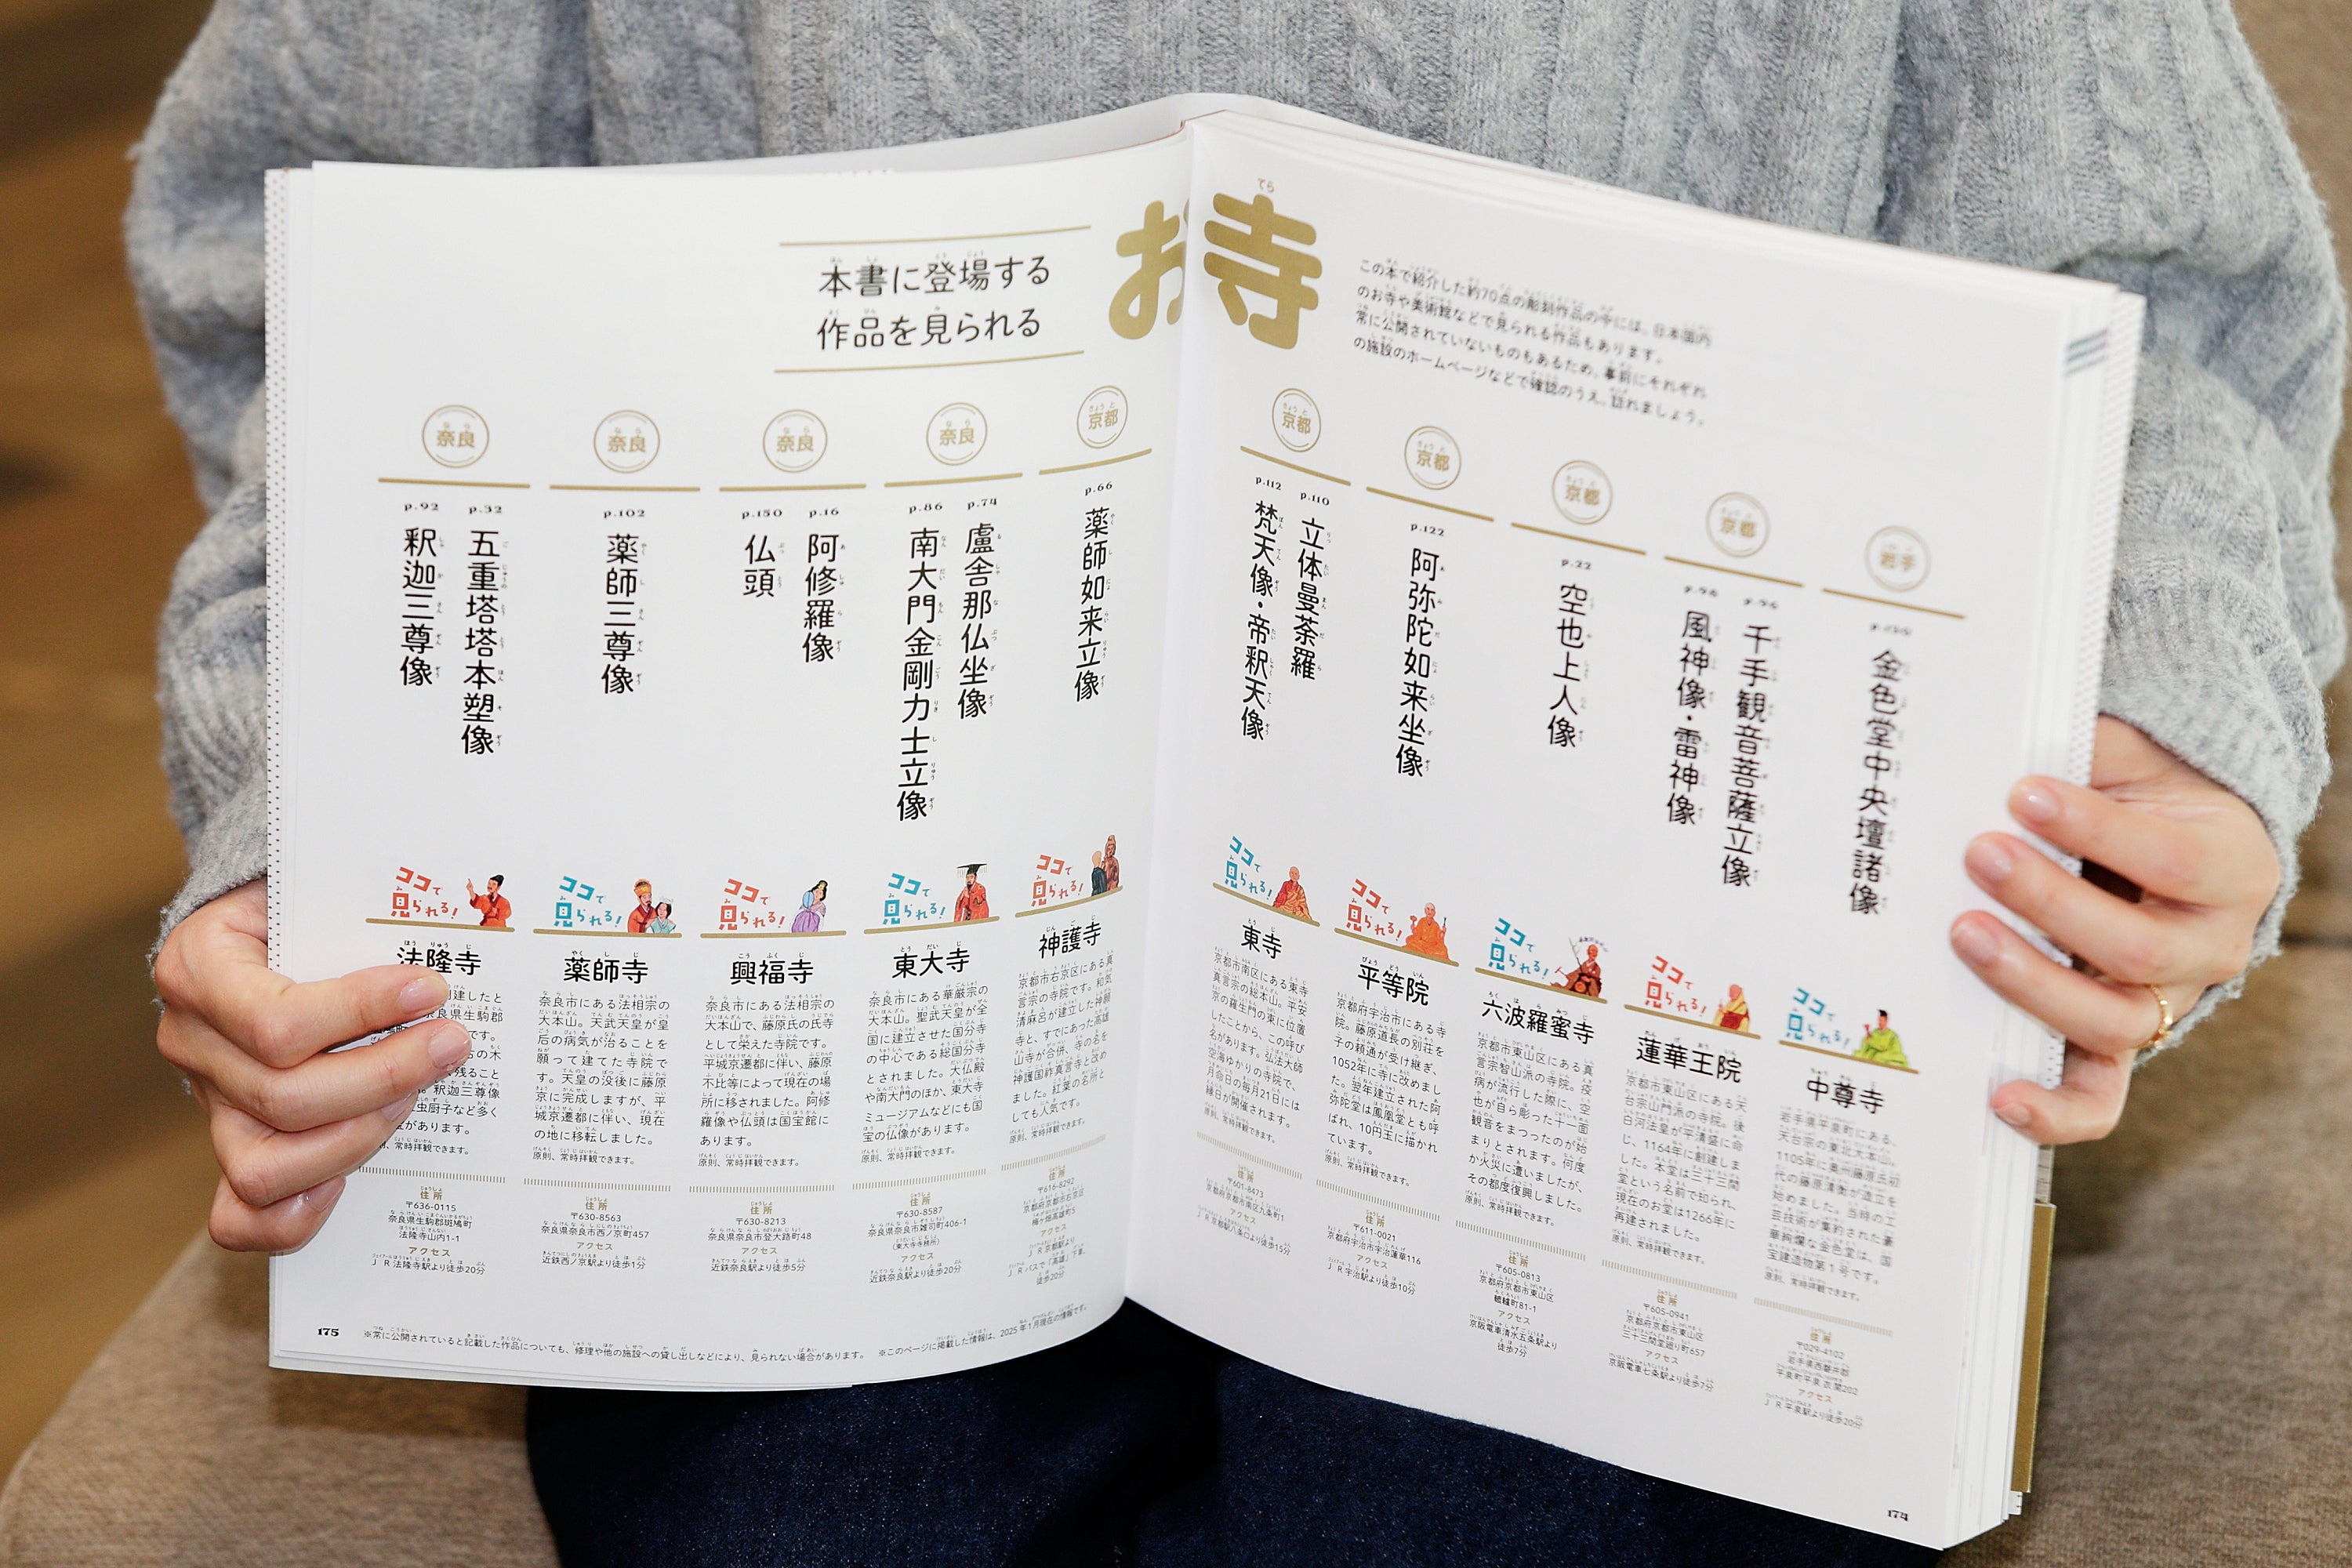 本書に登場する
作品を見られる
お寺
この本で紹介した約70点の彫刻作品の中には、日本国内
のお寺や美術館などで見られる作品もあります。
常に公開されていないものもあるため、事前にそれぞれ
の施設のホームページなどで確認のうえ、訪れましょう。
岩手
金色堂中央壇諸像
ココで
見られる!
中尊寺
岩手県平泉町にある、
天台宗の東北大本山。
1105年に奥州藤原氏初
代の藤原清衡が造立を
始めました。当時の工
芸技術が集約された豪
華絢爛な金色堂は、国
宝建造物第1号です。
原則、常時拝観できます。
住所
〒029-4102
岩手県西磐井郡
平泉町平泉衣関202
アクセス
JR平泉駅より徒歩20分
京都
p.96
千手観音菩薩立像
p.98
風神像・雷神像
ココで
見られる!
蓮華王院
京都市東山区にある天
台宗山門派の寺院。後
白河法皇が平清盛に命
じ、1164年に創建しま
した。本堂は三十三間
堂という名前で知られ、
現在のお堂は1266年に
再建されました。
原則、常時拝観できます。
住所
〒605-0941
京都府京都市東山区
三十三間堂廻り町657
アクセス
京阪電車七条駅より徒歩7分
京都
p.22
空也上人像
ココで
見られる!
六波羅蜜寺
京都市東山区にある真
言宗智山派の寺院。疫
病が流行した際に、空
也が自ら彫った十一面
観音をまつったのが始
まりとされます。何度
か火災に遭いましたが、
その都度復興しました。
原則、常時拝観できます。
住所
〒605-0813
京都府京都市東山区
轆轤町81-1
アクセス
京阪電車清水五条駅より
徒歩7分
京都
p.122
阿弥陀如来坐像
ココで
見られる!
平等院
京都府宇治市にある寺
院。藤原道長の別荘を
子の頼通が受け継ぎ、
1052年に寺に改めまし
た。翌年建立された阿
弥陀堂は鳳凰堂とも呼
ばれ、10円玉に描かれ
ています。
原則、常時拝観できます。
住所
〒611-0021
京都府宇治市宇治蓮華116
アクセス
JR宇治駅より徒歩10分
京都
p.110
立体曼荼羅
p.112
梵天像・帝釈天像
ココで
見られる!
東寺
京都市南区にある東寺
真言宗の総本山。平安
京の羅生門の東に位置
したことから、この呼び
名があります。弘法大師
空海ゆかりの寺院で、
月命日の毎月21日には
縁日が開催されます。
原則、常時拝観できます。
住所
〒601-8473
京都府京都市南区九条町1
アクセス
JR京都駅八条口より徒歩15分
174
京都
p.66
薬師如来立像
ココで
見られる!
神護寺
京都市右京区にある真
言宗の寺院です。和気
清麻呂が建立した神願
寺と、すでにあった高雄
山寺が合併、寺の名を
神護国祚真言寺と改め
ました。紅葉の名所と
しても人気です。
原則、常時拝観できます。
住所
〒616-8292
京都府京都市右京区
梅ヶ畑高雄町5
アクセス
JR京都駅より
JRバスで「高雄」下車、
徒歩20分
奈良
p.74
盧舎那仏坐像
p.86
南大門金剛力士立像
ココで
見られる!
東大寺
奈良市にある華厳宗の
大本山。聖武天皇が全
国に建立させた国分寺
の中心である総国分寺
とされました。大仏殿
や南大門のほか、東大寺
ミュージアムなどにも国
宝の仏像があります。
原則、常時拝観できます。
住所
〒630-8587
奈良県奈良市雑司町406-1
(東大寺寺務所)
アクセス
近鉄奈良駅より徒歩20分
奈良
p.16
阿修羅像
p.150
仏頭
ココで
見られる!
興福寺
奈良市にある法相宗の
大本山で、藤原氏の氏寺
として栄えた寺院です。
平城京遷都に伴い、藤原
不比等によって現在の場
所に移されました。阿修
羅像や仏頭は国宝館に
あります。
原則、常時拝観できます。
住所
〒630-8213
奈良県奈良市登大路町48
アクセス
近鉄奈良駅より徒歩5分
奈良
p.102
薬師三尊像
ココで
見られる!
薬師寺
奈良市にある法相宗の
大本山。天武天皇が皇
后の病気が治ることを
願って建てた寺院で
す。天皇の没後に藤原
京に完成しますが、平
城京遷都に伴い、現在
の地に移転しました。
原則、常時拝観できます。
住所
〒630-8563
奈良県奈良市西ノ京町457
アクセス
近鉄西ノ京駅より徒歩1分
奈良
p.32
五重塔塔本塑像
p.92
釈迦三尊像
ココで
見られる!
法隆寺
建したと
良県生駒郡
です。
の木
残ること
釈迦三尊像
虫厨子など多く
があります。
則、常時拝観できます。
住所
〒636-0115
奈良県生駒郡斑鳩町
法隆寺山内1-1
アクセス
JR法隆寺駅より徒歩20分
175
※常に公開されていると記載した作品についても、修理や他の施設への貸し出しなどにより、見られない場合があります。 ※このページに掲載した情報は、2025年1月現在の情報です。